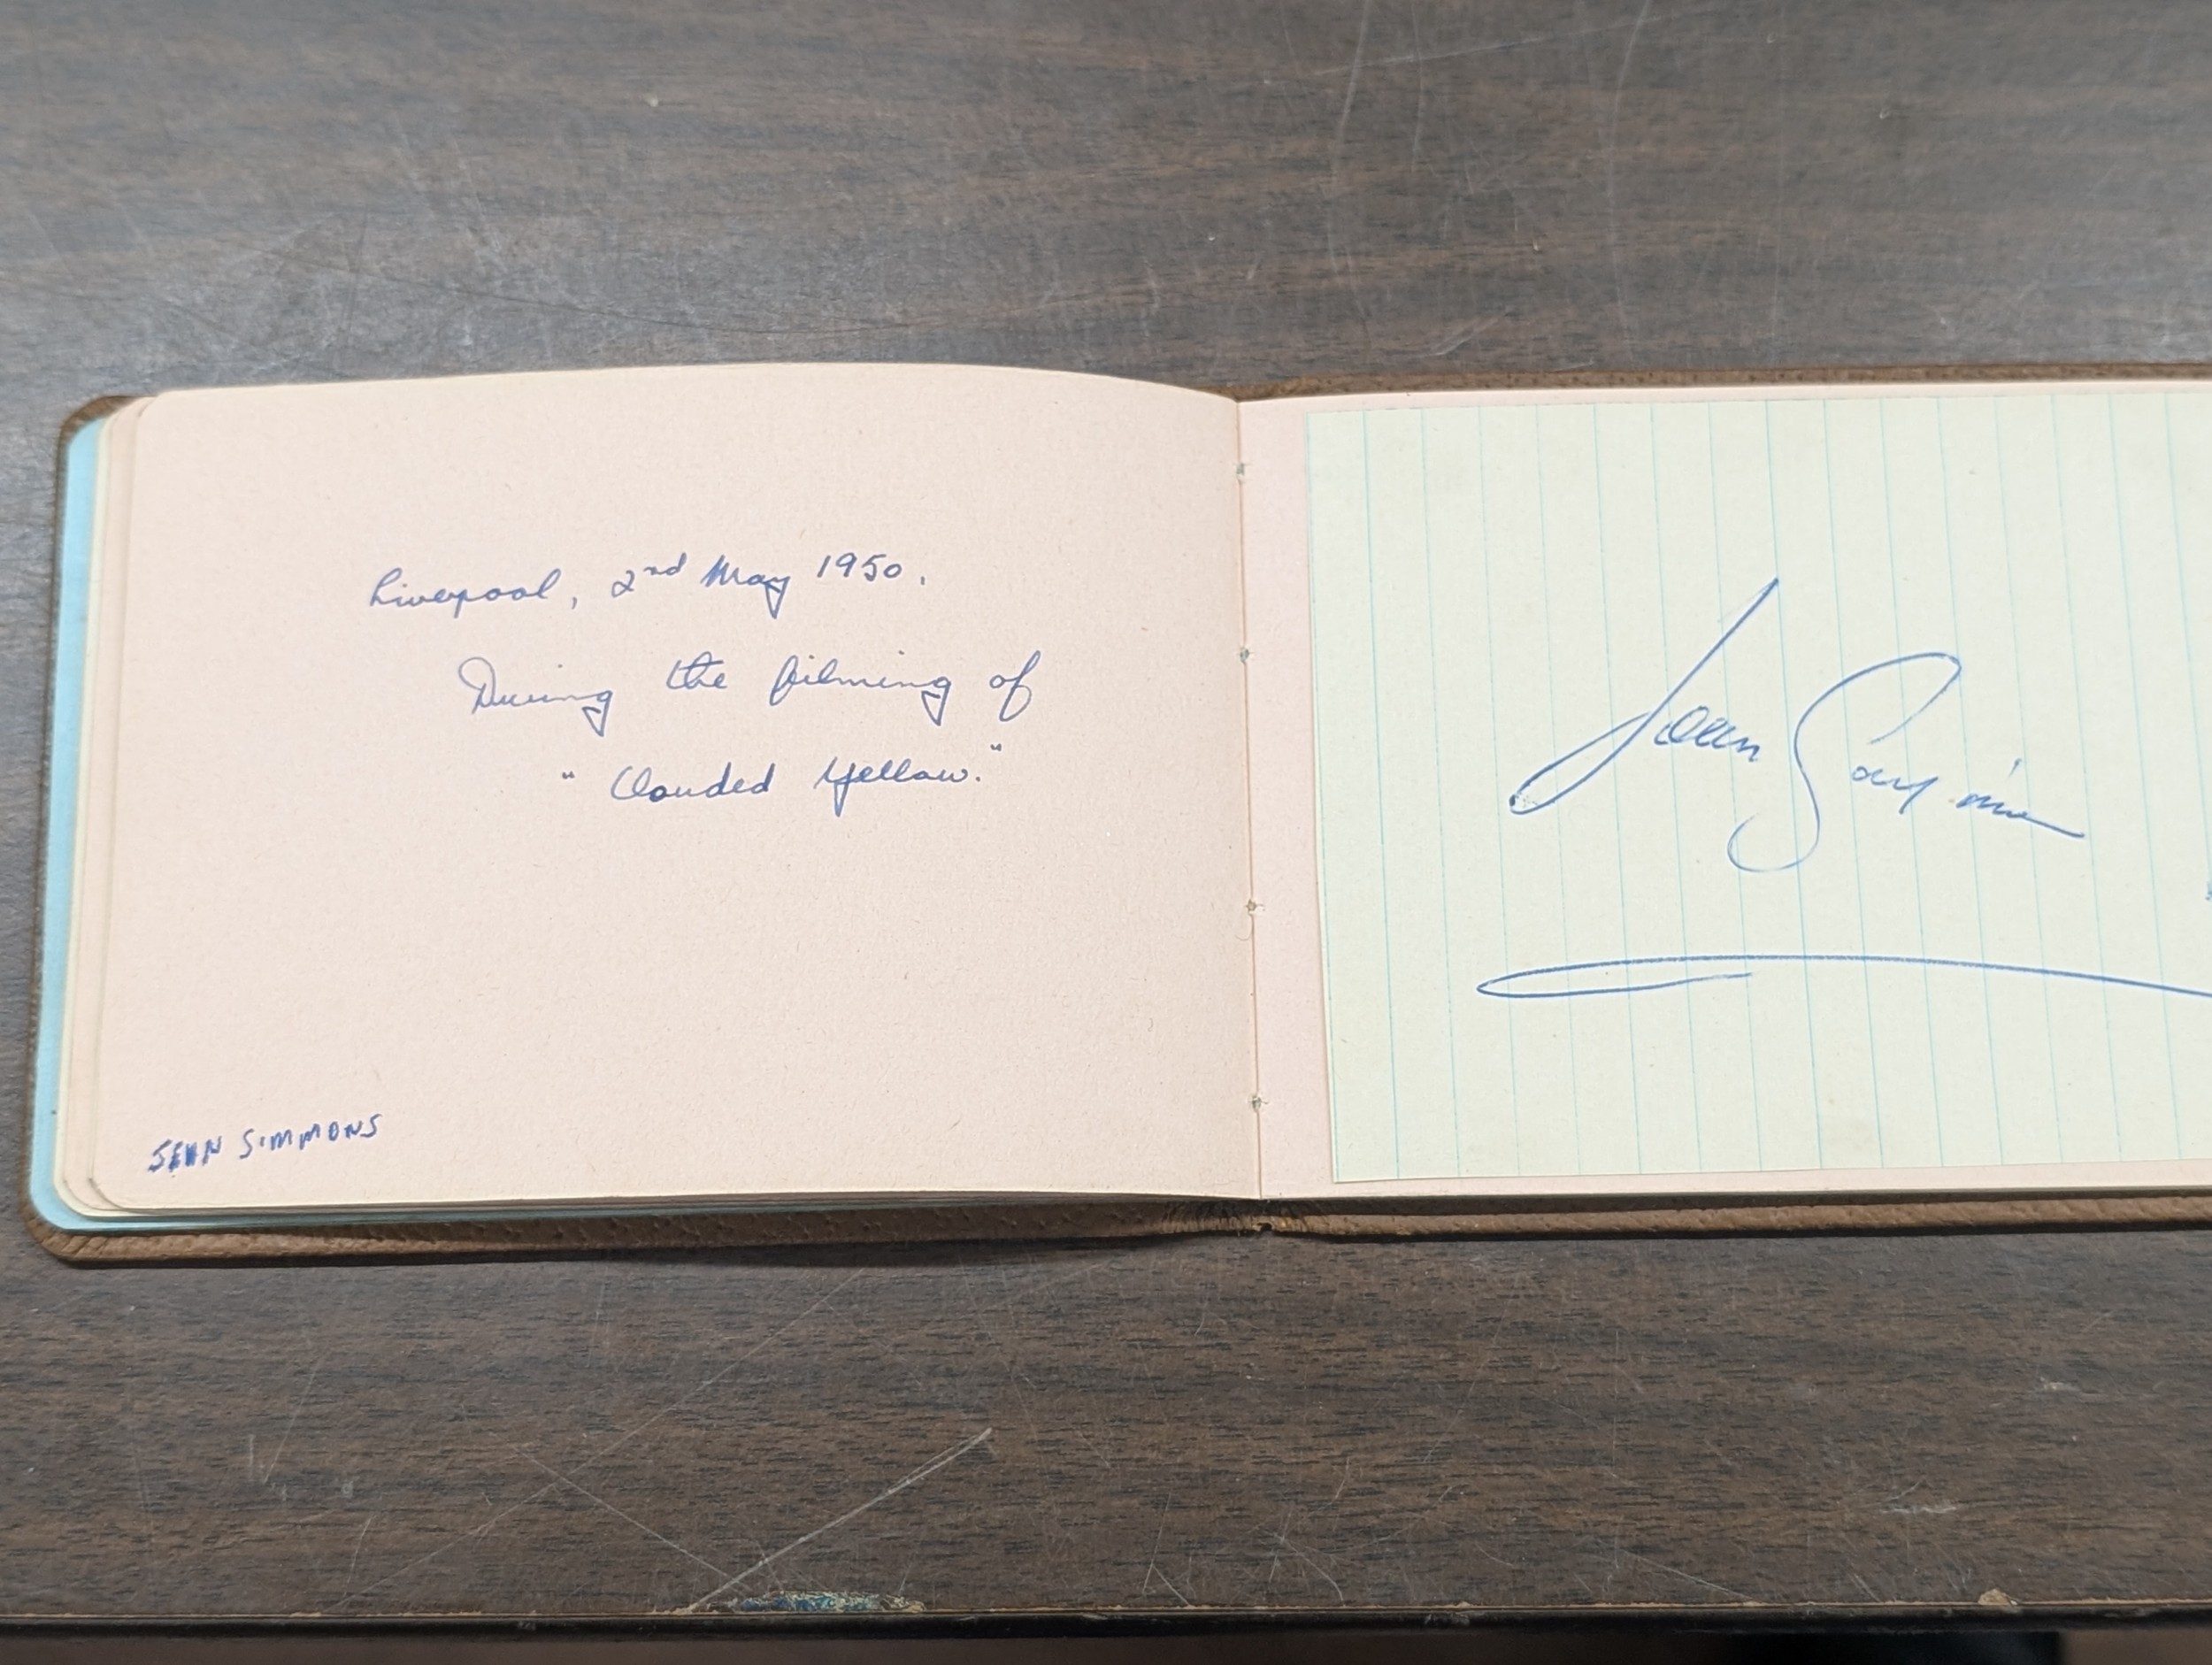 Liverpool, 2nd May 1950.
During the filming of
"Clouded Yellow."
JEAN SIMMONS
Jean Simmons